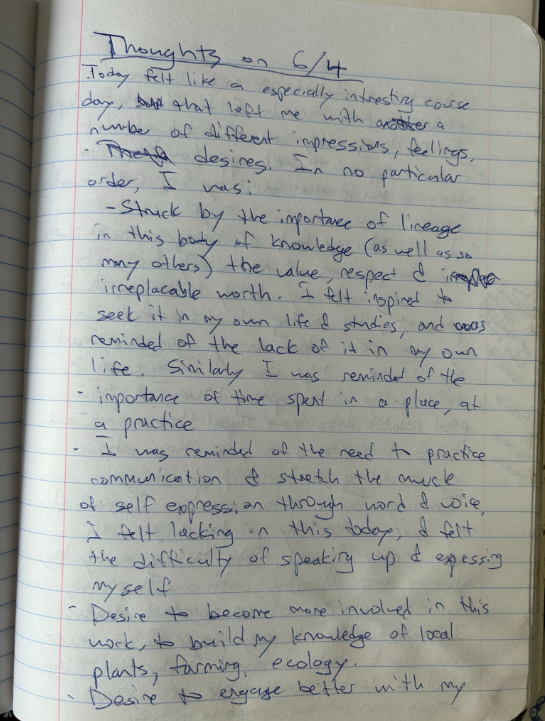 Thoughts on 6/4
Today felt like a especially intresting course
day, that left me with a
number of different impressions, feelings,
- desires. In no particular
order, I was:
- Struck by the importance of lineage
in this body of knowledge (as well as so
many others) the value, respect &
irreplacable worth. I felt inspired to
seek it in my own life & studies, and was
reminded of the lack of it in my own
life. Similarly I was reminded of the
- importance of time spent in a place, at
a practice
- I was reminded of the need to practice
communication & stretch the muscle
of self expression through word & voice,
I felt lacking in this today, & felt
the difficulty of speaking up & expessing
myself
- Desire to become more involved in this
work, to build my knowledge of local
plants, farming, ecology.
- Desire to engage better with my